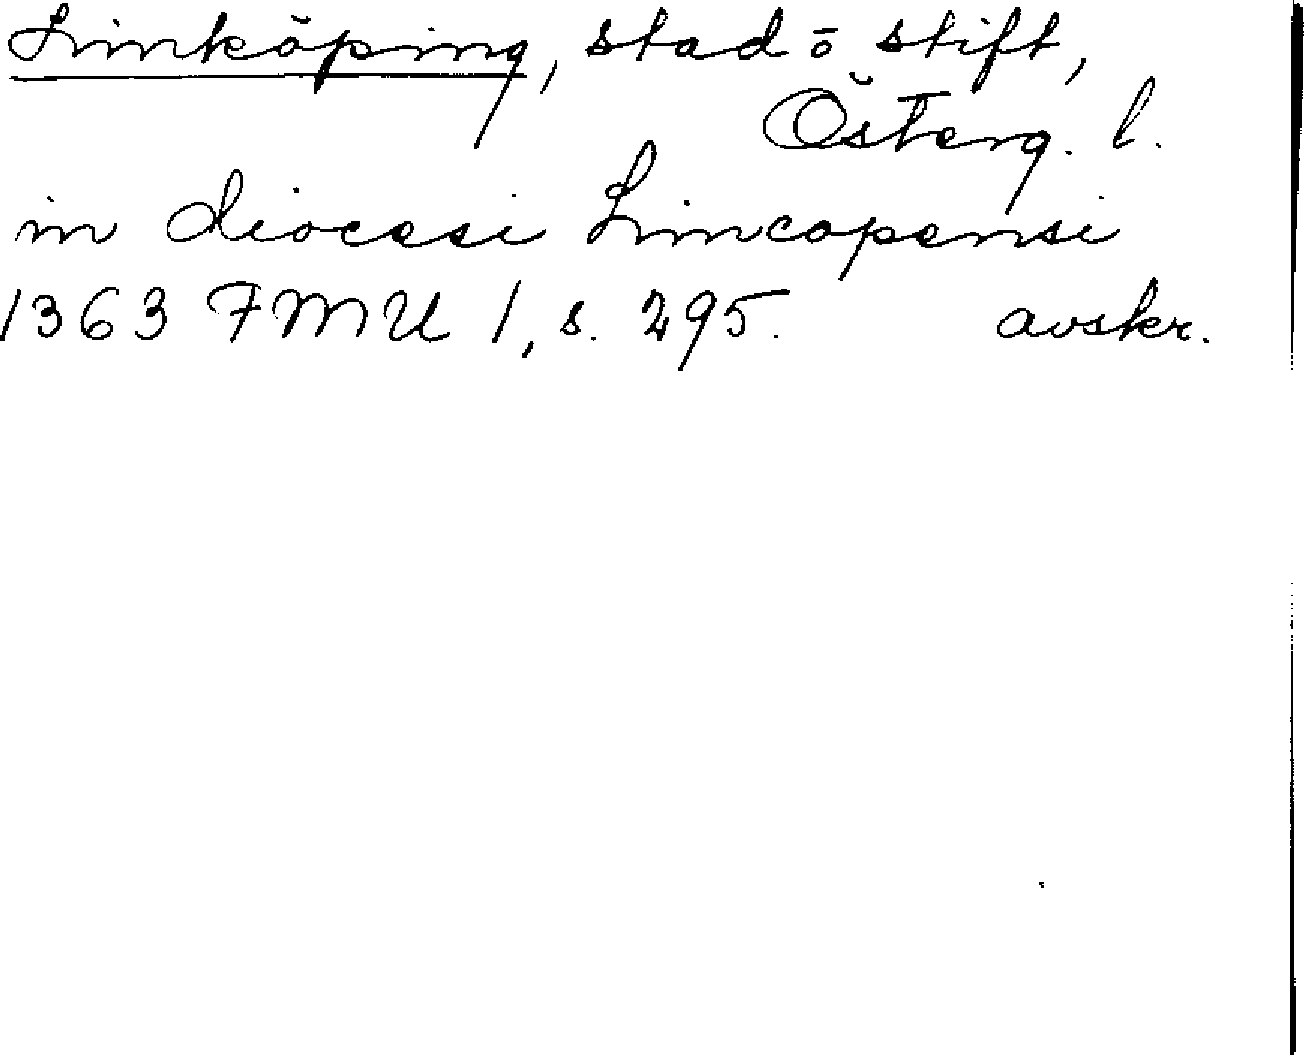 Linköping, stad o stift,
Österg. l.
in diocesi Lincopensi
1363 FMU 1, s. 295. avskr.